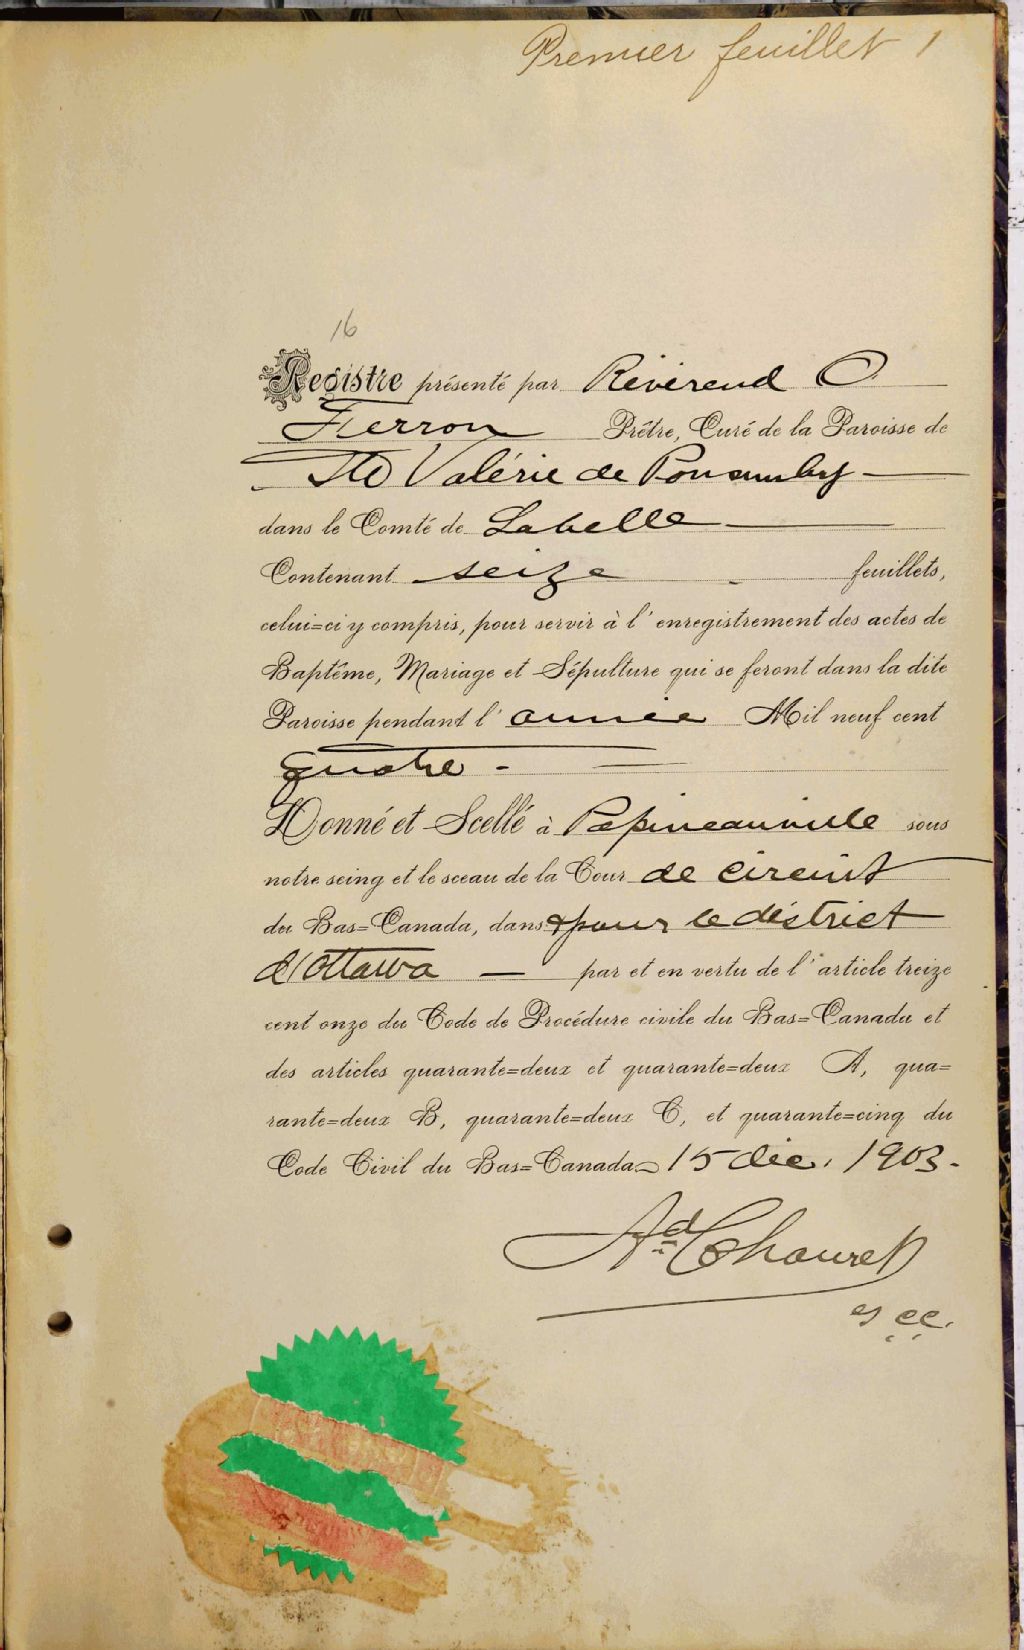 Premier feuillet 1
16
Registre présenté par Révérend O.
Ferron Prêtre, Curé de la Paroisse de
Ste Valérie de Ponsonby
dans le Comté de Labelle
Contenant seize feuillets,
celui=ci y compris, pour servir à l'enregistrement des actes de
Baptême, Mariage et Sépulture qui se feront dans la dite
Paroisse pendant l'année Mil neuf cent
quatre.
Donné et Scellé à Papineauville sous
notre seing et le sceau de la Cour de circuit
du Bas=Canada, dans & pour le district
d'Ottawa par et en vertu de l'article treize
cent onze du Code de Procédure civile du Bas=Canada et
des articles quarante=deux et quarante=deux A, qua=
rante=deux B, quarante=deux C, et quarante=cinq du
Code Civil du Bas=Canada 15 déc. 1903.
Ad Chauret
c.c.